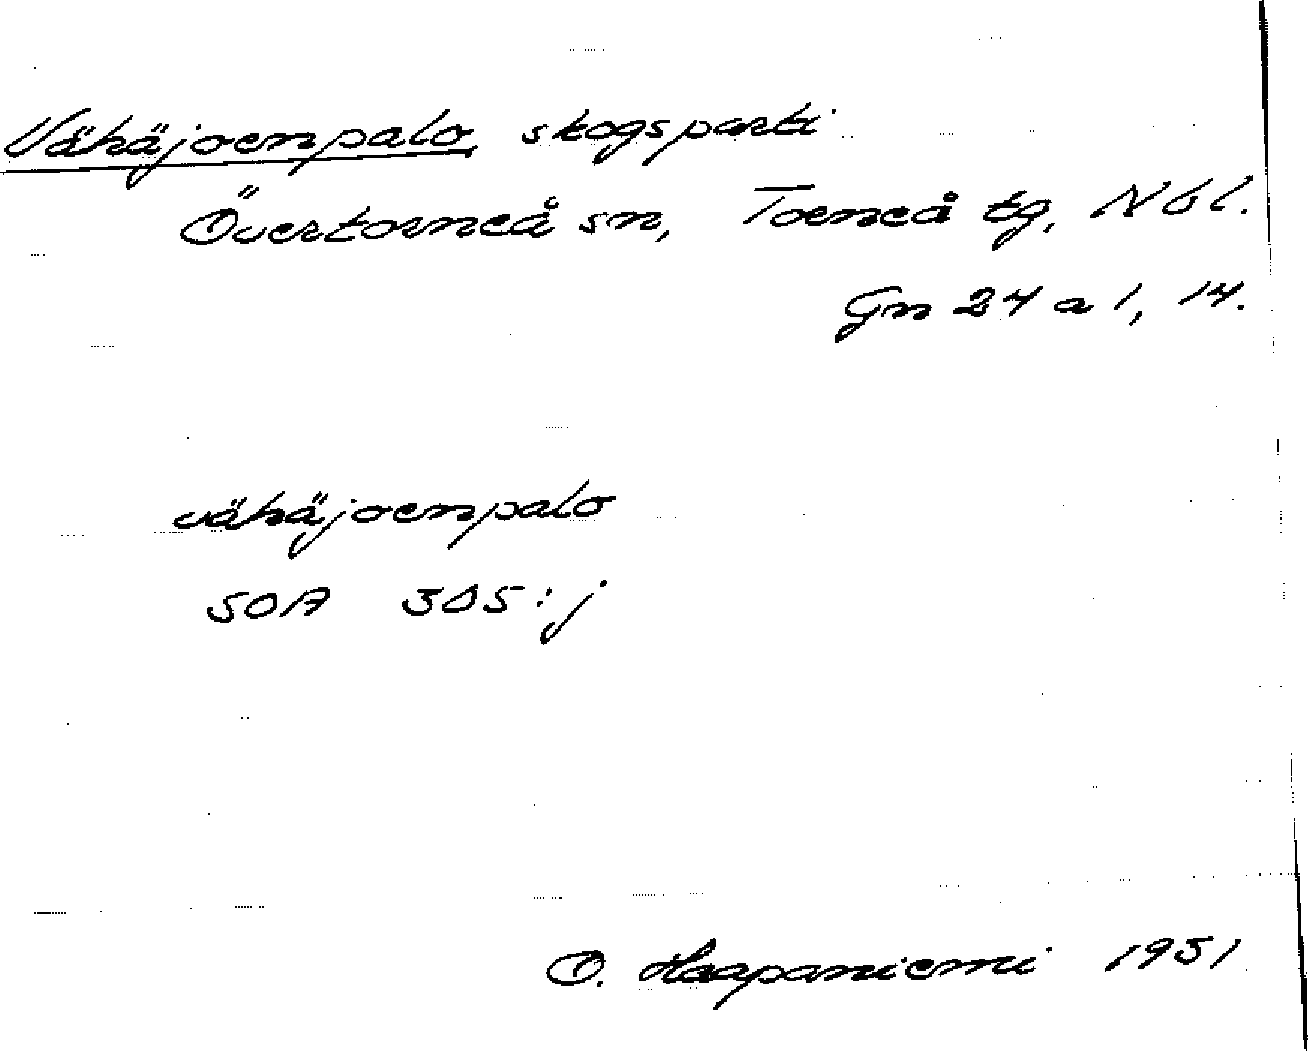 Vähäjoenpalo, skogsparti
Övertorneå sn, Torneå tg, Nbl.
Gn 24 a 1, 14.
vähäjoenpalo
SOA 305:j
O. Haapaniemi 1951